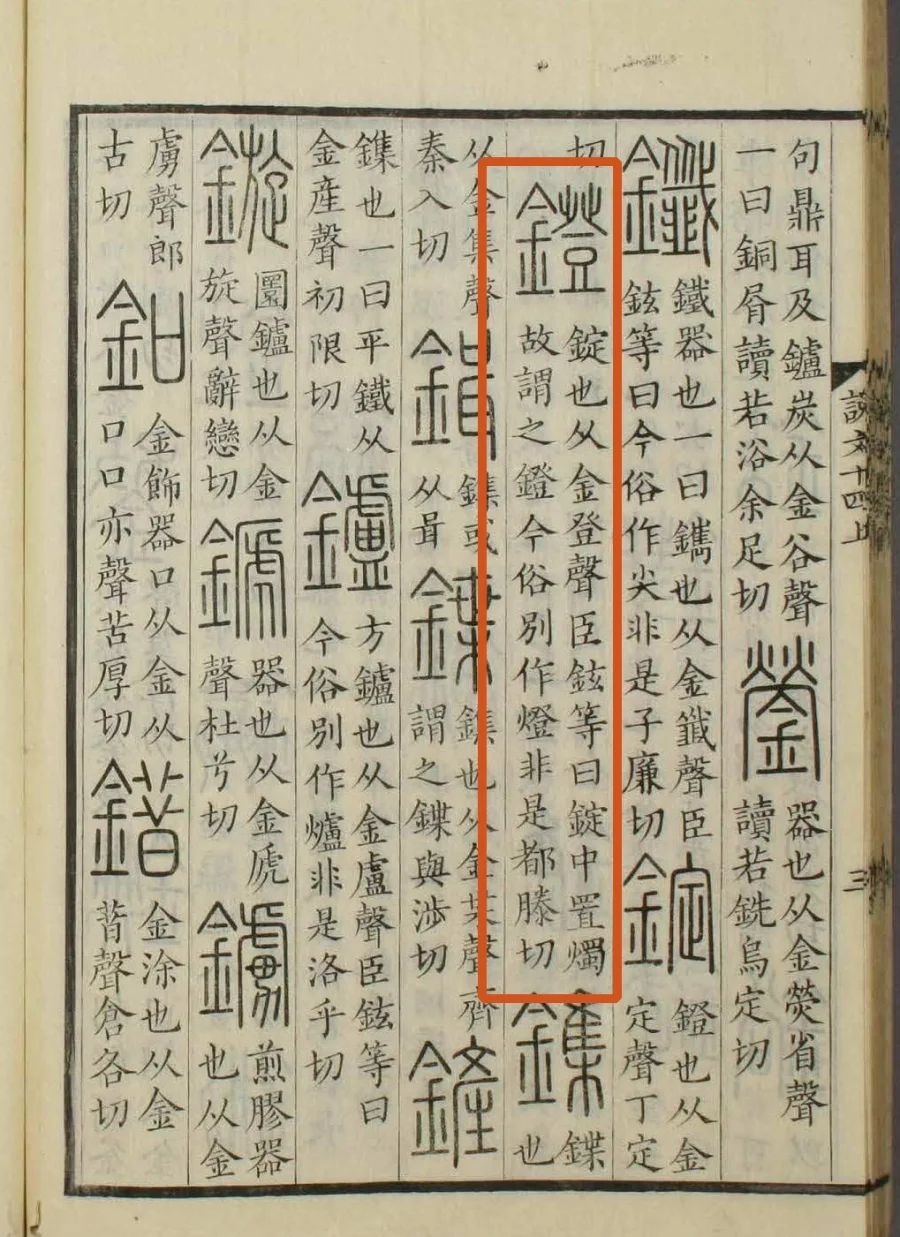 說文十四上
三
句鼎耳及鑪炭从金谷聲一曰銅屑讀若浴余足切 鎣 器也从金熒省聲讀若銑烏定切
鑯 鐵器也一曰鐫也从金韱聲臣鉉等曰今俗作尖非是子廉切 錠 鐙也从金定聲丁定
切 鐙 錠也从金登聲臣鉉等曰錠中置燭故謂之鐙今俗別作燈非是都滕切 鏶 鍱也
从金集聲秦入切 鍓 鏶或从咠 鍱 鏶也从金枼聲齊謂之鍱與涉切 鏟
鏶也一曰平鐵从金産聲初限切 鑪 方鑪也从金盧聲臣鉉等曰今俗別作爐非是洛乎切
鏇 圜鑪也从金旋聲辭戀切 鷈 器也从金虒聲杜兮切 鐪 煎膠器也从金
虜聲郎古切 釦 金飾器口从金从口口亦聲苦厚切 錯 金涂也从金㫺聲倉各切